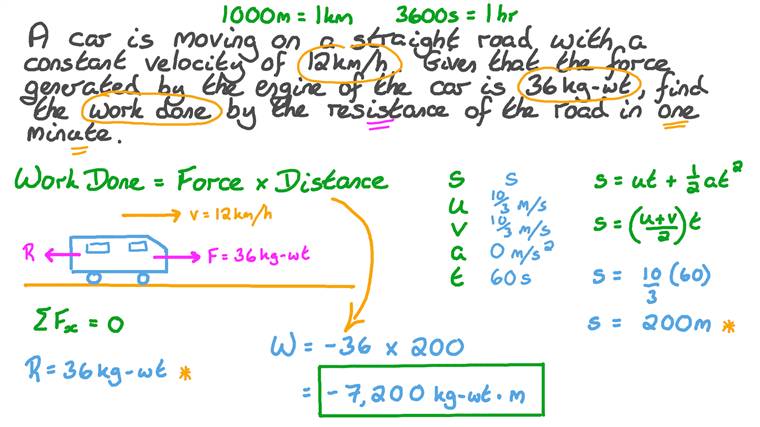 1000m = 1km 3600s = 1hr
A car is moving on a straight road with a
constant velocity of 12km/h. Given that the force
generated by the engine of the car is 36kg-wt, find
the work done by the resistance of the road in one
minute.
Work Done = Force × Distance
v = 12km/h
R F = 36kg-wt
ΣFₓ = 0
R = 36kg-wt *
W = -36 × 200
= -7,200 kg-wt·m
s s
u 10/3 m/s
v 10/3 m/s
a 0 m/s²
t 60s
s = ut + 1/2 at²
s = (u+v/2)t
s = 10/3 (60)
s = 200m *